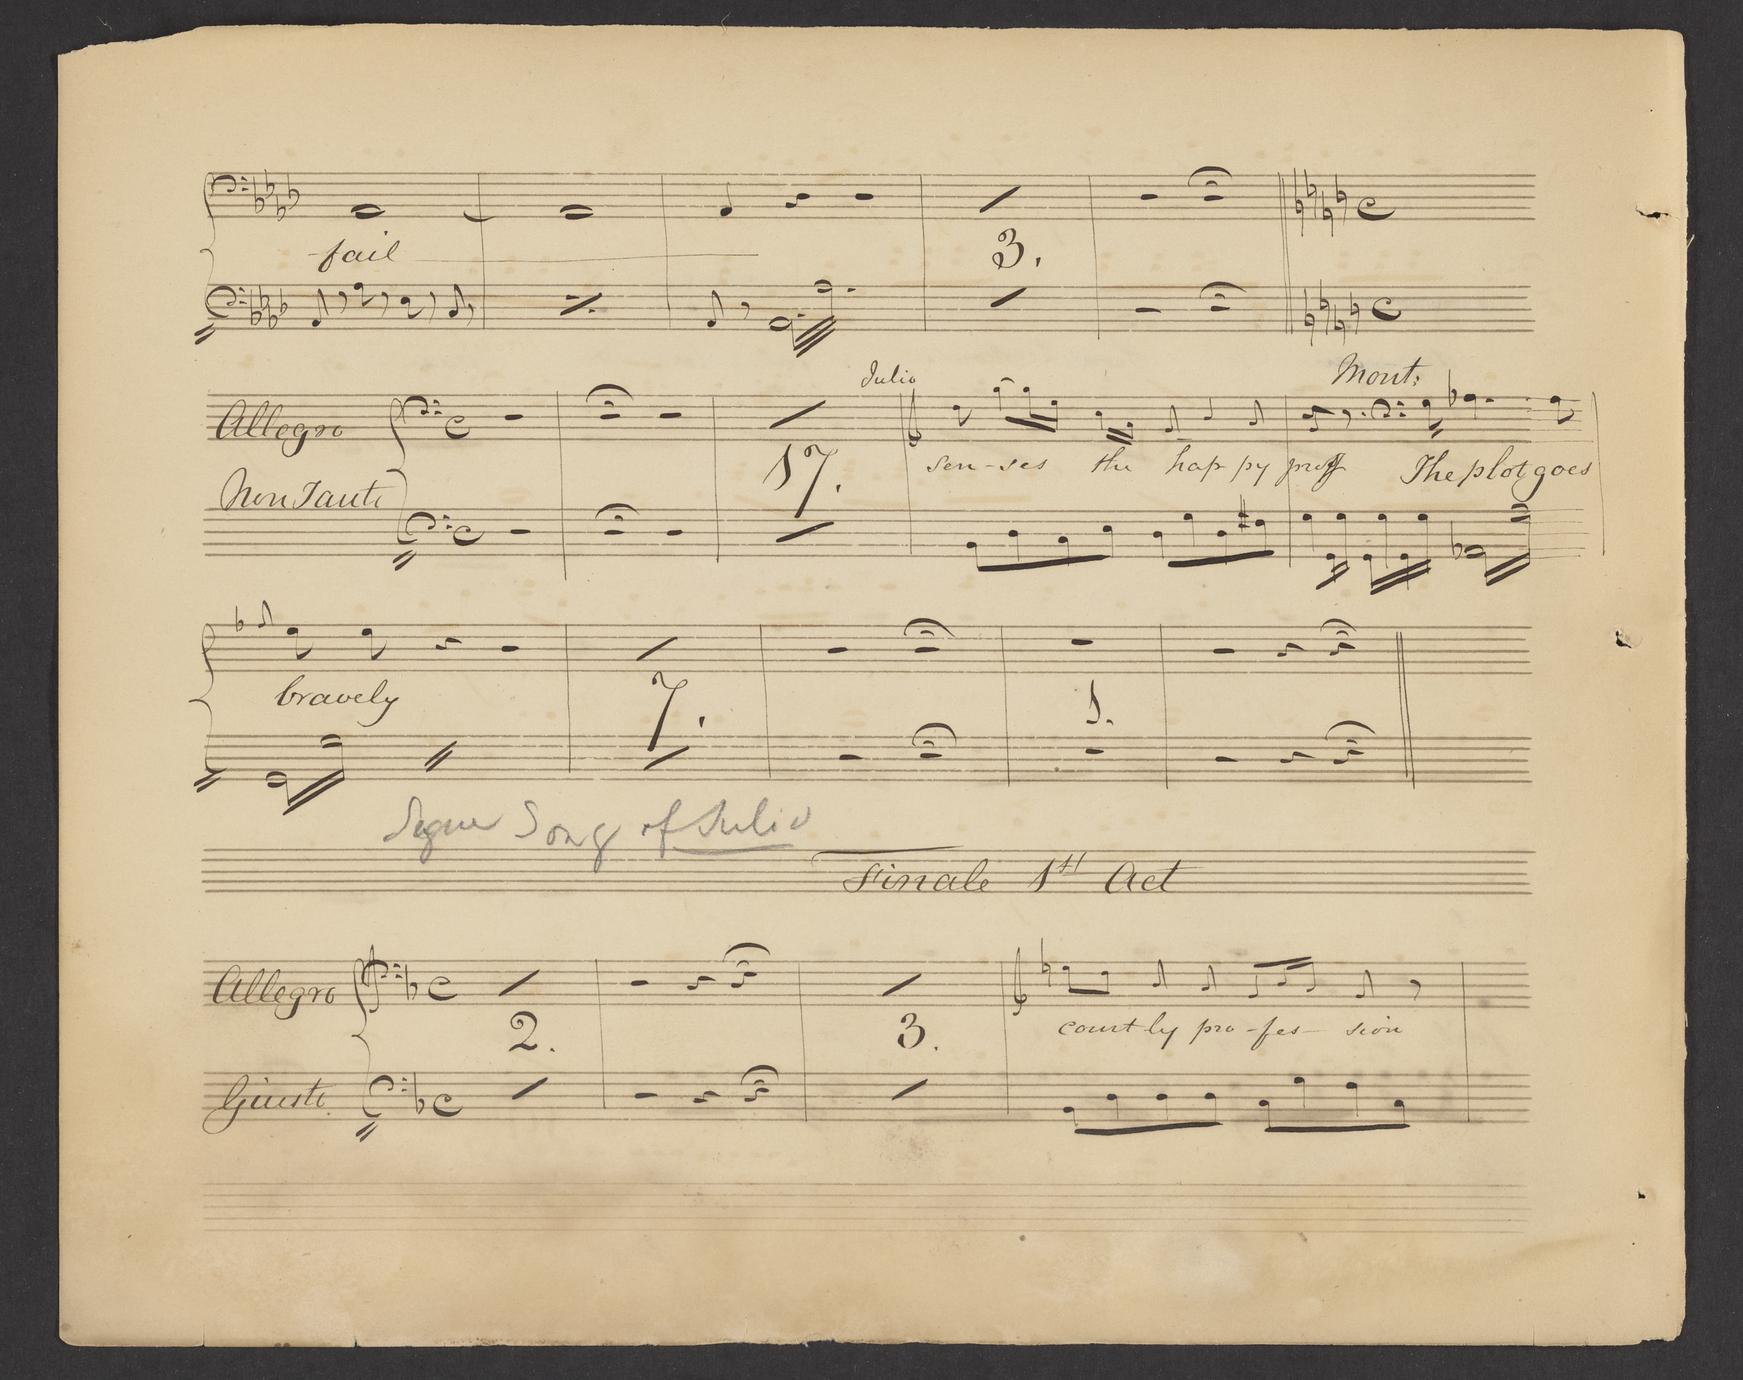 fail
3.
Julio
Mont:
Allegro
sen-ses the hap py proff The plot goes
Non Tanto
17.
bravely
7.
1.
Segue Song of Julio
Finale 1st Act
Allegro
2.
3.
court ly pro-fes- sion
Giusto.